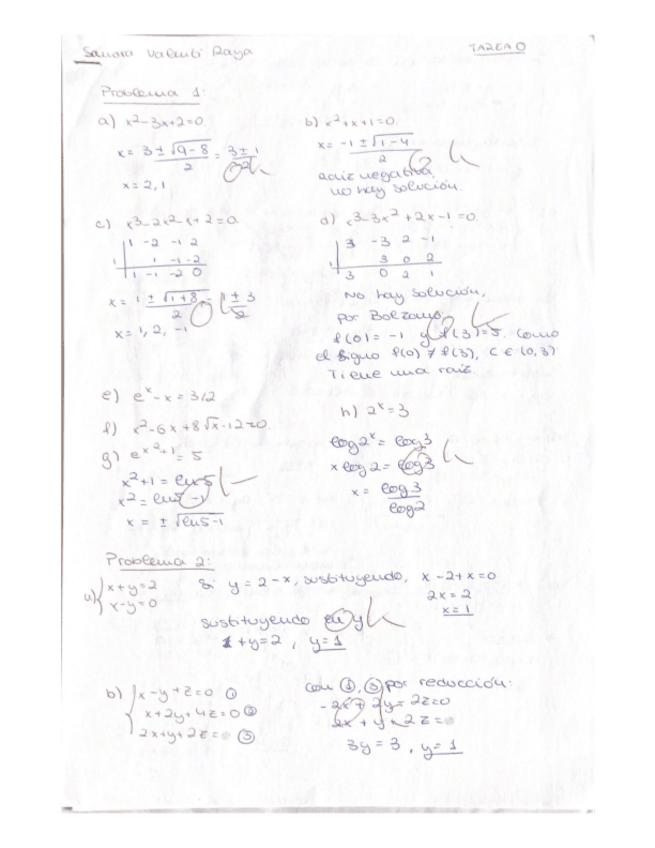 Sandra Valentí Raya
TAREA 0
Problema 1:
a) x²-3x+2=0
x = 3 ± √9-8 / 2 = 3 ± 1 / 2
x = 2, 1
b) x²+x+1=0
x = -1 ± √1-4 / 2
raiz negativa,
no hay solución.
c) x³-2x²-x+2=0
1 -2 -1 2
1 1 -1 -2
1 -1 -2 0
x = 1 ± √1+8 / 2 = 1 ± 3 / 2
x = 1, 2, -1
d) x³-3x²+2x-1=0.
3 -3 2 -1
1 3 0 2
3 0 2 1
No hay solución,
por Bolzano,
f(0) = -1 y f(3)=5. Como
el signo f(0) ≠ f(3), C ∈ (0,3)
Tiene una raiz
e) eˣ-x = 3/2
f) x²-6x+8√x-12=0.
g) e^x²+1 = 5
x²+1 = ln5
x² = ln5 -1
x = ± √ln5-1
h) 2ˣ=3
log2ˣ = log3
x log2 = log3
x = log3 / log2
Problema 2:
a) { x+y=2
x-y=0
Si y = 2-x, sustituyendo, x-2+x=0
2x=2
x=1
sustituyendo en y
1+y=2, y=1
b) { x-y+z=0 ①
x+2y+4z=0 ②
2x+y+2z= ③
Con ①, ③ por reducción:
-2x + 2y - 2z=0
2x + y + 2z=
3y = 3, y=1